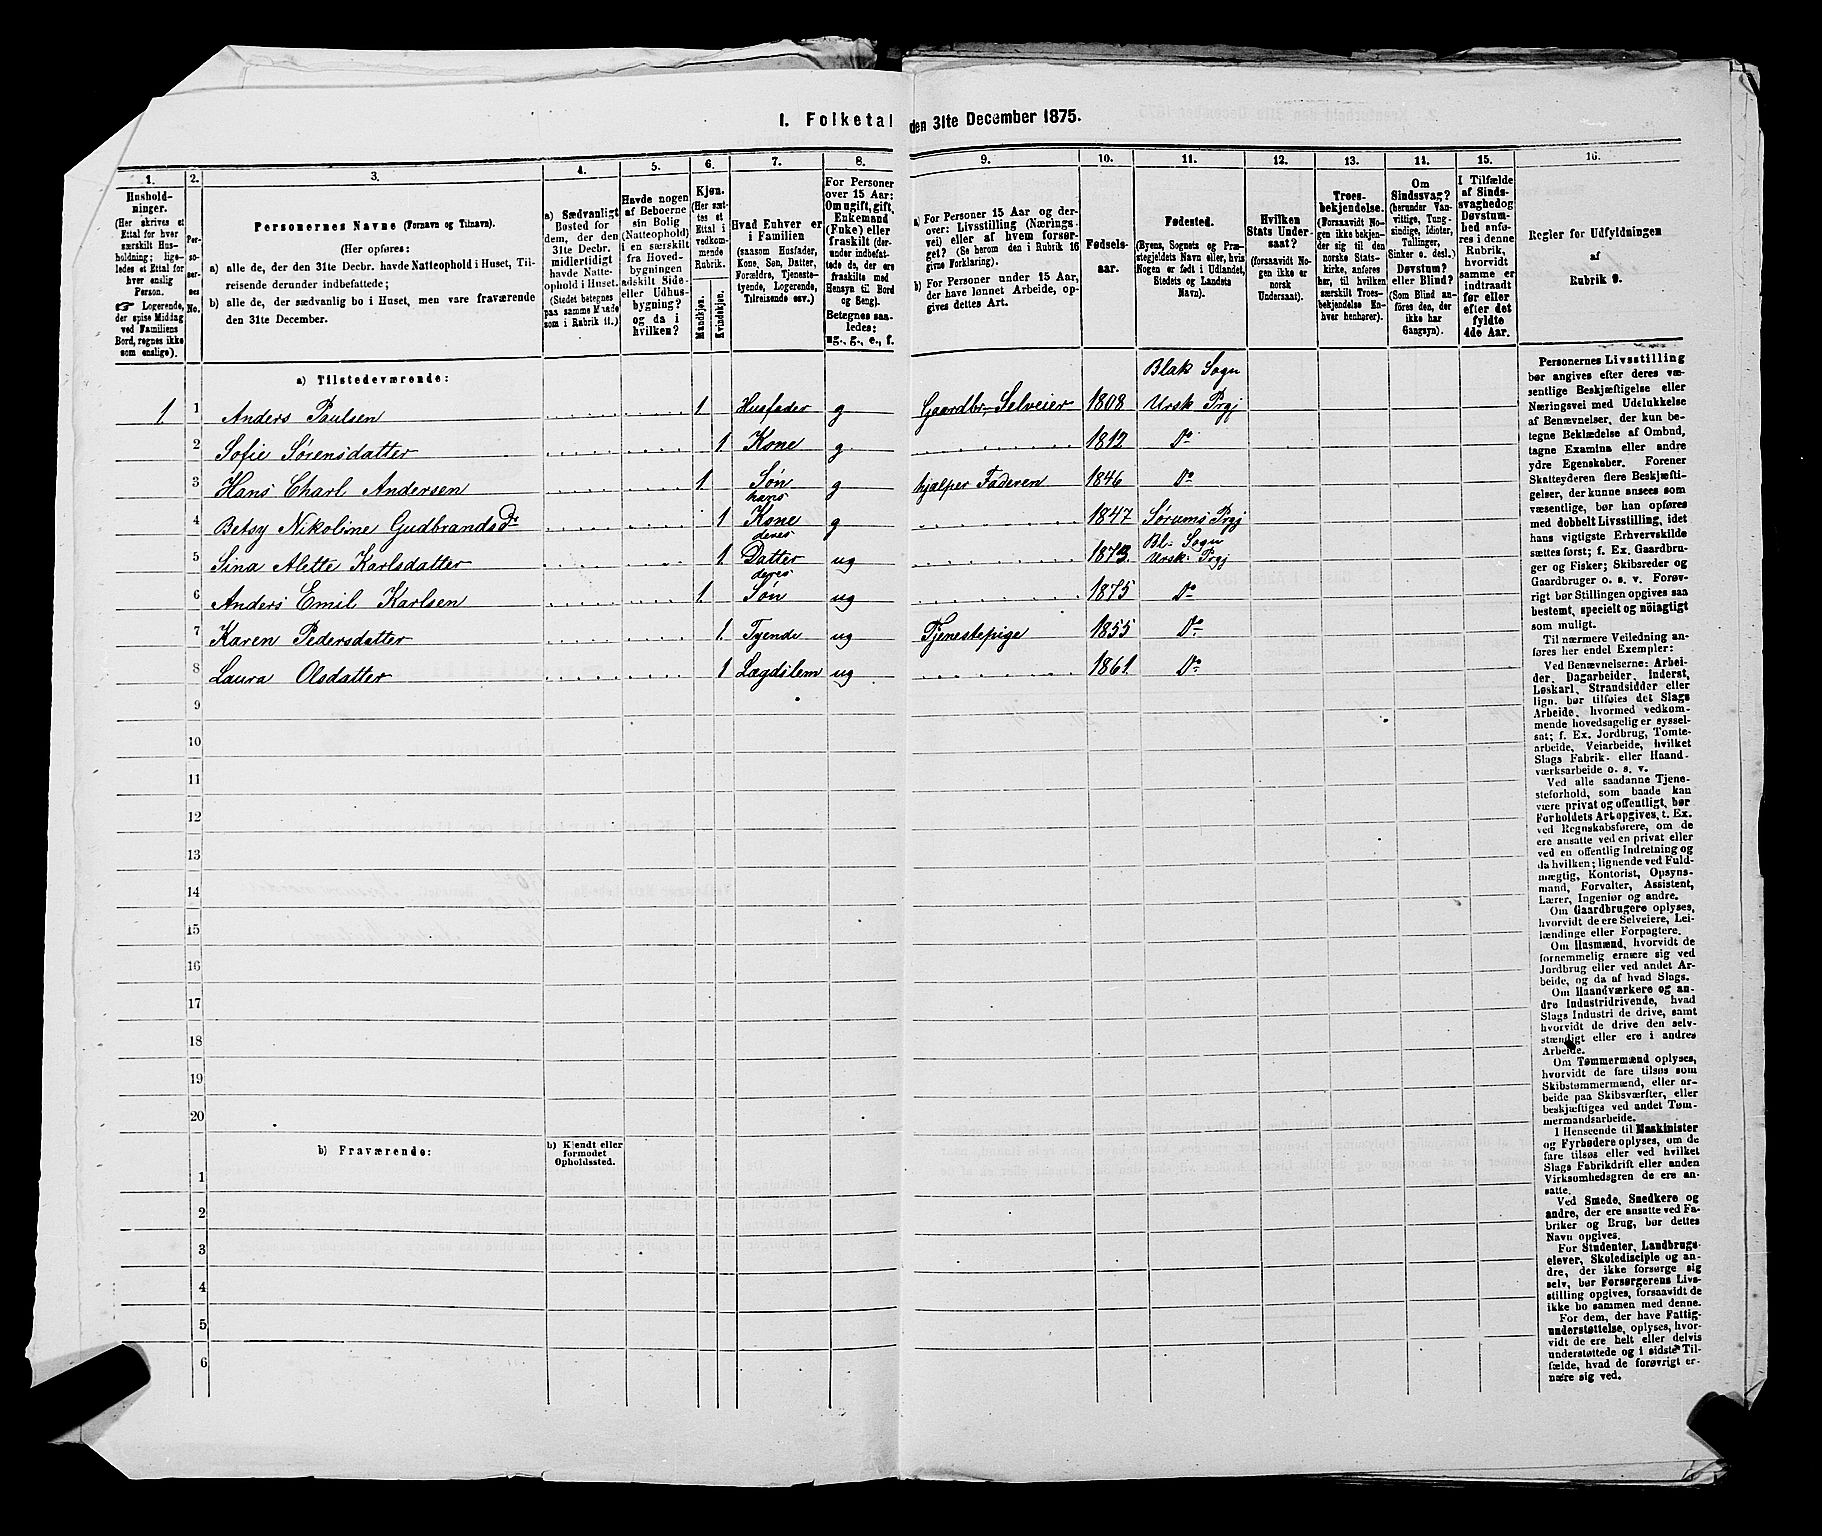 I. Folketal den 31te December 1875.
1. 2. 3. 4. 5. 6. 7. 8. 9. 10. 11. 12. 13. 14. 15. 16.
Hushold-
ninger.
(Her skrives et
Ettal for hver
særskilt Hus-
holdning; lige-
ledes et Ettal for
hver enslig
Person.
☞ Logerende,
der spise Middag
ved Familiens
Bord, regnes ikke
som enslige).
Per-
so-
ner-
nes
No.
Personernes Navne (Fornavn og Tilnavn).
(Her opføres:
a) alle de, der den 31te Decbr. havde Natteophold i Huset, Til-
reisende derunder indbefattede;
b) alle de, der sædvanlig bo i Huset, men vare fraværende
den 31te December.
a) Sædvanligt
Bosted for
dem, der den
31te Decbr.
midlertidigt
havde Natte-
ophold i Huset.
(Stedet betegnes
paa samme Maade
som i Rubrik 11.)
Havde nogen
af Beboerne
sin Bolig
(Natteophold)
i en særskilt
fra Hoved-
bygningen
adskilt Side-
eller Udhus-
bygning?
og da i
hvilken?
Kjøn.
(Her sæt-
tes et
Ettal i
vedkom-
mende
Rubrik.
Mandkjøn.
Kvindekjøn.
Hvad Enhver er
i Familien
(saasom Husfader,
Kone, Søn, Datter,
Forældre, Tjeneste-
tyende, Logerende,
Tilreisende osv.)
For Personer
over 15 Aar:
Om ugift, gift,
Enkemand
(Enke) eller
fraskilt (der-
under indbefat-
tede de, der ere
fraskilte med
Hensyn til Bord
og Seng).
Betegnes saa-
ledes:
ug., g., e., f.
a) For Personer 15 Aar og der-
over: Livsstilling (Nærings-
vei) eller af hvem forsør-
get? (Se herom den i Rubrik 16
givne Forklaring).
b) For Personer under 15 Aar,
der have lønnet Arbeide, op-
gives dettes Art.
Fødsels-
aar.
Fødested.
(Byens, Sognets og Præ-
stegjeldets Navn eller, hvis
Nogen er født i Udlandet,
Stedets og Landets
Navn).
Hvilken
Stats Under-
saat?
(forsaavidt No-
gen ikke er
norsk
Undersaat).
Troes-
bekjendelse.
(Forsaavidt No-
gen ikke bekjen-
der sig til den
norske Stats-
kirke, anføres
her, til hvilken
særskilt Troes-
bekjendelse En-
hver henhører).
Om
Sindssvag?
(herunder Van-
vittige, Tung-
sindige, Idioter,
Tullinger,
Sinker o. desl.)
Døvstum?
eller Blind?
(Som Blind an-
føres den, der
ikke har
Gangsyn).
I Tilfælde
af Sinds-
svaghed og
Døvstum-
hed anfø-
res i denne
Rubrik,
hvorvidt
samme er
indtraadt
før eller
efter det
fyldte
4de Aar.
Regler for Udfyldningen
af
Rubrik 9.
a) Tilstedeværende:
Blak Sogn
1 1 Anders Paulsen 1 Husfader g Gaardbr. Selveier 1808 Ursk Prgj
2 Sofie Sørensdatter 1 Kone g 1812 Do
3 Hans Charl Andersen 1 Søn g hjælper Faderen 1846 Do
hans
4 Betsy Nikoline Gudbrandsdr 1 Kone g 1847 Sørums Prgj
deres Bl- Sogn
5 Sina Alette Karlsdatter 1 Datter ug 1873. Ursk- Prgj
deres
6 Anders Emil Karlsen 1 Søn ug 1875 Do
7 Karen Pedersdatter 1 Tyende ug Tjenestepige 1855 Do
8 Laura Olsdatter 1 Lægdslem ug 1861. Do
9
10
11
12
13
14
15
16
17
18
19
20
b) Fraværende:
b) Kjendt eller
formodet
Opholdssted.
1
2
3
4
5
6
Personernes Livsstilling
bør angives efter deres væ-
sentlige Beskjæftigelse eller
Næringsvei med Udelukkelse
af Benævnelser, der kun be-
tegne Beklædelse af Ombud,
tagne Examina eller andre
ydre Egenskaber. Forener
Skatteyderen flere Beskjæfti-
gelser, der kunne ansees som
væsentlige, bør han opføres
med dobbelt Livsstilling, idet
hans vigtigste Erhvervskilde
sættes først; f. Ex. Gaardbru-
ger og Fisker; Skibsreder og
Gaardbruger o. s. v. Forøv-
rigt bør Stillingen opgives saa
bestemt, specielt og nöiagtigt
som muligt.
Til nærmere Veiledning an-
føres her endel Exempler:
Ved Benævnelserne: Arbei-
der, Dagarbeider, Inderst,
Løskarl, Strandsidder eller
lign. bør tilføies det Slags
Arbeide, hvormed vedkom-
mende hovedsagelig er syssel-
sat; f. Ex. Jordbrug, Tomte-
arbeide, Veiarbeide, hvilket
Slags Fabrik- eller Haand-
værksarbeide o. s. v.
Ved alle saadanne Tjene-
steforhold, som baade kan
være privat og offentligt, bør
Forholdets Art opgives, t. Ex.
ved Regnskabsførere, om de
ere ansatte ved en privat eller
ved en offentlig Indretning og
da hvilken; lignende ved Fuld-
mægtig, Kontorist, Opsyns-
mand, Forvalter, Assistent,
Lærer, Ingeniør og andre.
Om Gaardbrugere oplyses,
hvorvidt de ere Selveiere, Lei-
lændinge eller Forpagtere.
Om Husmænd, hvorvidt de
fornemmelig ernære sig ved
Jordbrug eller ved andet Ar-
beide, og da af hvad Slags.
Om Haandværkere og an-
dre Industridrivende, hvad
Slags Industri de drive, samt
hvorvidt de drive den selv-
stændigt eller ere i andres
Arbeide.
Om Tømmermænd oplyses,
hvorvidt de fare tilsøs som
Skibstømmermænd, eller ar-
beide paa Skibsværfter, eller
beskjæftiges ved andet Tøm-
mermandsarbeide.
I Henseende til Maskinister
og Fyrbødere oplyses, om de
fare tilsøs eller ved hvilket
Slags Fabrikdrift eller anden
Virksomhedsgren de ere an-
satte.
Ved Smede, Snedkere og
andre, der ere ansatte ved Fa-
briker og Brug, bør dettes
Navn opgives.
For Studenter, Landbrugs-
elever, Skoledisciple og an-
dre, der ikke forsørge sig
selv, bør Forsørgerens Livs-
stilling opgives, forsaavidt de
ikke bo sammen med denne.
For dem, der have Fattig-
understøttelse, oplyses, hvor-
vidt de ere helt eller delvis
understøttede og i sidste Til-
fælde, hvad de forøvrigt er-
nære sig ved.